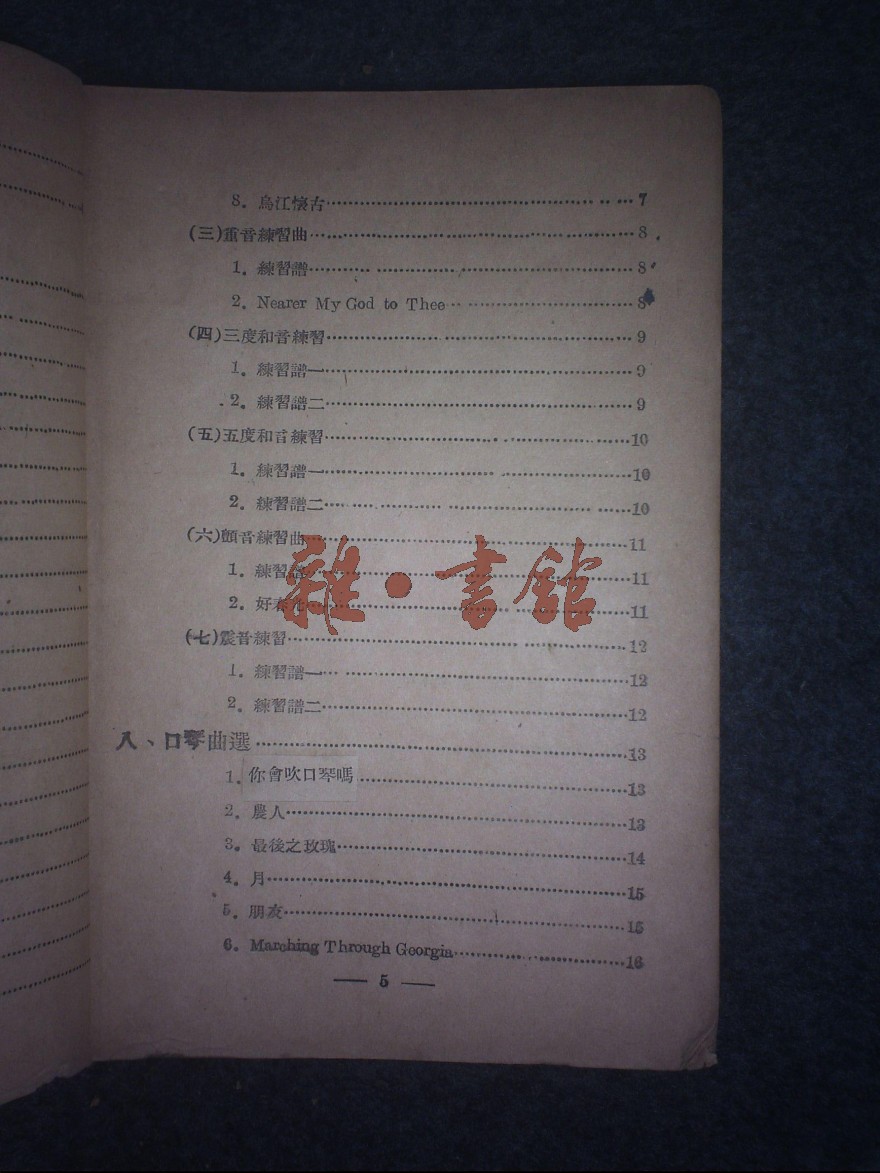 8. 烏江懷古 7
(三)重音練習曲 8
1. 練習譜 8
2. Nearer My God to Thee 8
(四)三度和音練習 9
1. 練習譜一 9
2. 練習譜二 9
(五)五度和音練習 10
1. 練習譜一 10
2. 練習譜二 10
(六)顫音練習曲 11
1. 練習譜 11
2. 好 11
(七)震音練習 12
1. 練習譜一 12
2. 練習譜二 12
八、口琴曲選 13
1. 你會吹口琴嗎 13
2. 農人 13
3. 最後之玫瑰 14
4. 月 15
5. 朋友 15
6. Marching Through Georgia 16
— 5 —
雜·書館